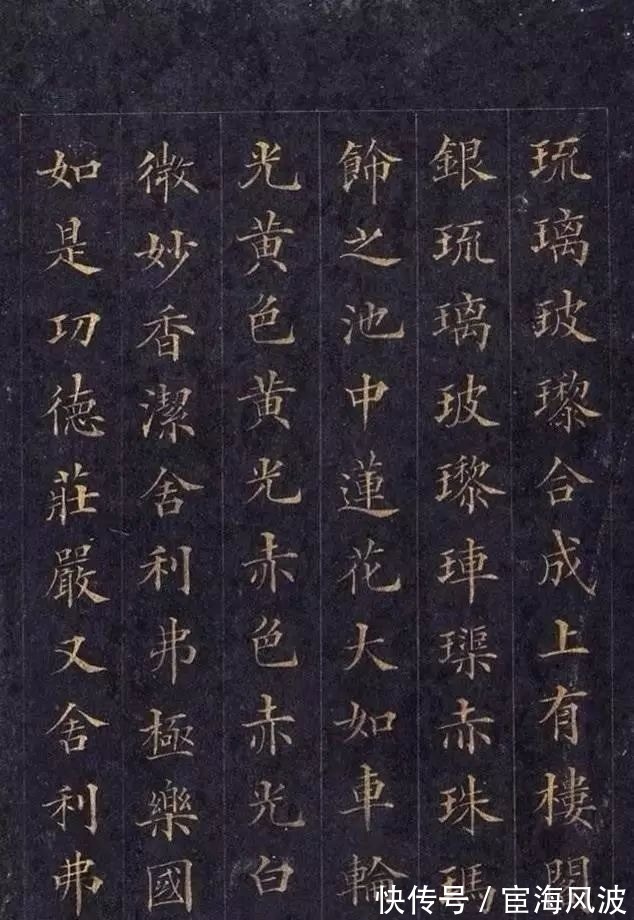 琉璃玻瓈合成上有樓閣
銀琉璃玻瓈𤥭璖赤珠瑪
飾之池中蓮花大如車輪
光黄色黄光赤色赤光白
微妙香潔舍利弗極樂國
如是功德莊嚴又舍利弗
快传号／宦海风波